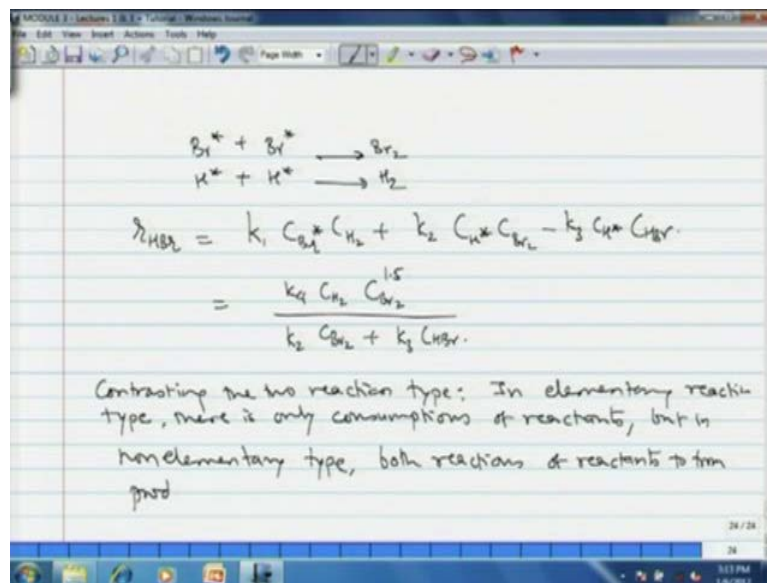 MODULE 3 - Lectures 1 & 3 + Tutorial - Windows Journal
File Edit View Insert Actions Tools Help
Page Width
Br* + Br* → Br₂
H* + H* → H₂
r_HBr = k₁ C_Br* C_H₂ + k₂ C_H* C_Br₂ - k₃ C_H* C_HBr.
= k₄ C_H₂ C_Br₂^1.5
k₂ C_Br₂ + k₃ C_HBr.
Contrasting the two reaction type: In elementary reaction
type, there is only consumptions of reactants, but in
nonelementary type, both reactions of reactants to from
prod
24 / 24
24
3:13 PM